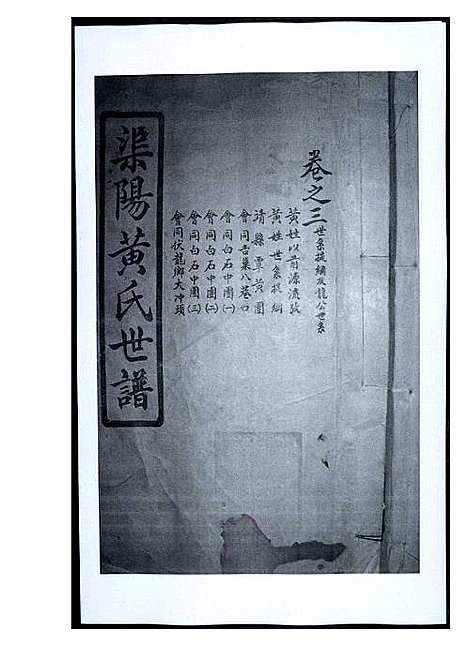 卷之三世系提綱及龍公世系
黃姓以前源流攷
黃姓世系提綱
靖縣覃黃團
會同吉巢八巷口
會同白石中團(一)
會同白石中團(二)
會同白石中團(三)
會同伏龍鄉大沖頭
渠陽黃氏世譜